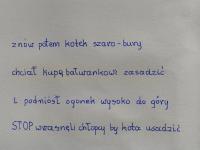 znów potem kotek szaro-bury
chciał kupę bałwankowi zasadzić
i podniósł ogonek wysoko do góry
STOP wrzasnęli chłopcy by kota usadzić